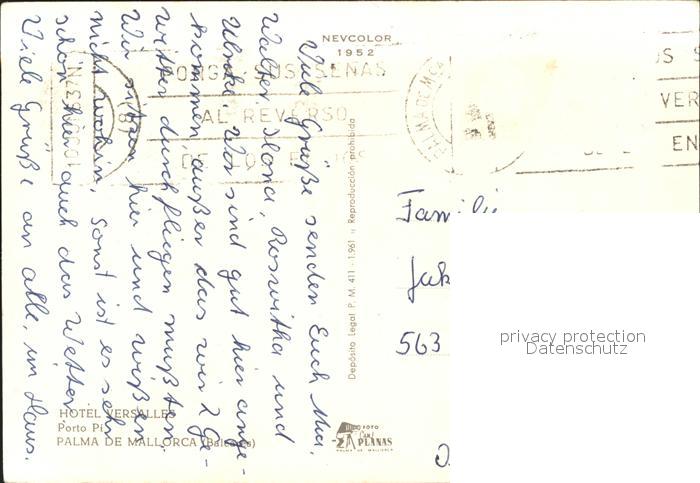 NEVCOLOR
1952
PONGA
SEÑAS
AL REVERSO
DE
PALMA DE M
S
VER
EN
Viele Grüße senden Euch Mu,
Walter, Ilona, Roswitha und
Ulrike. Wir sind gut hier ange-
kommen, außer das wir 2 Ge-
witter durchfliegen mußten.
Wir sitzen hier und wißen
nicht wohin. Sonst ist es sehr
schön hier auch das Wetter
Viele Grüße an alle, im Haus.
Depósito Legal P. M. 411 - 1.961 :: Reproducción prohibida
Familie
Jak
563
privacy protection
Datenschutz
HOTEL VERSALLES
Porto Pi
PALMA DE MALLORCA (Baleares)
FOTO
Casa
PLANAS
PALMA DE MALLORCA